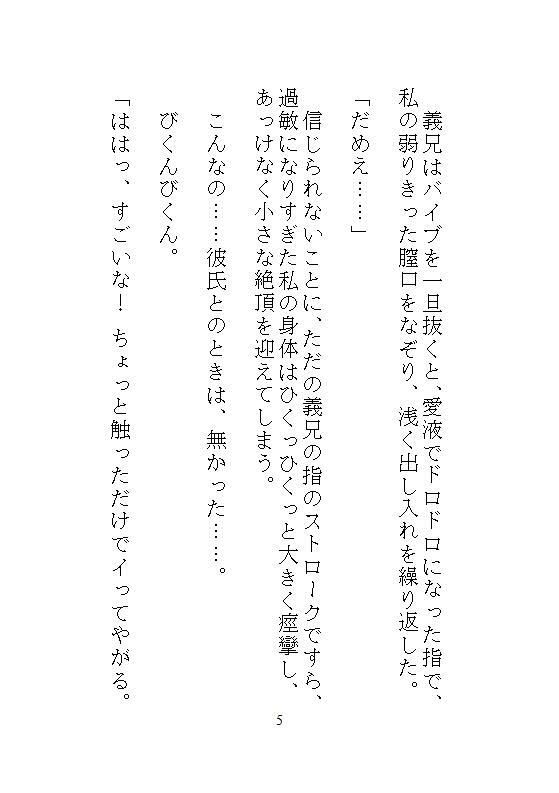 義兄はバイブを一旦抜くと、愛液でドロドロになった指で、
私の弱りきった膣口をなぞり、浅く出し入れを繰り返した。
「だめえ……」
信じられないことに、ただの義兄の指のストロークですら、
過敏になりすぎた私の身体はひくっひくっと大きく痙攣し、
あっけなく小さな絶頂を迎えてしまう。
こんなの……彼氏とのときは、無かった……。
びくんびくん。
「ははっ、すごいな! ちょっと触っただけでイってやがる。
5